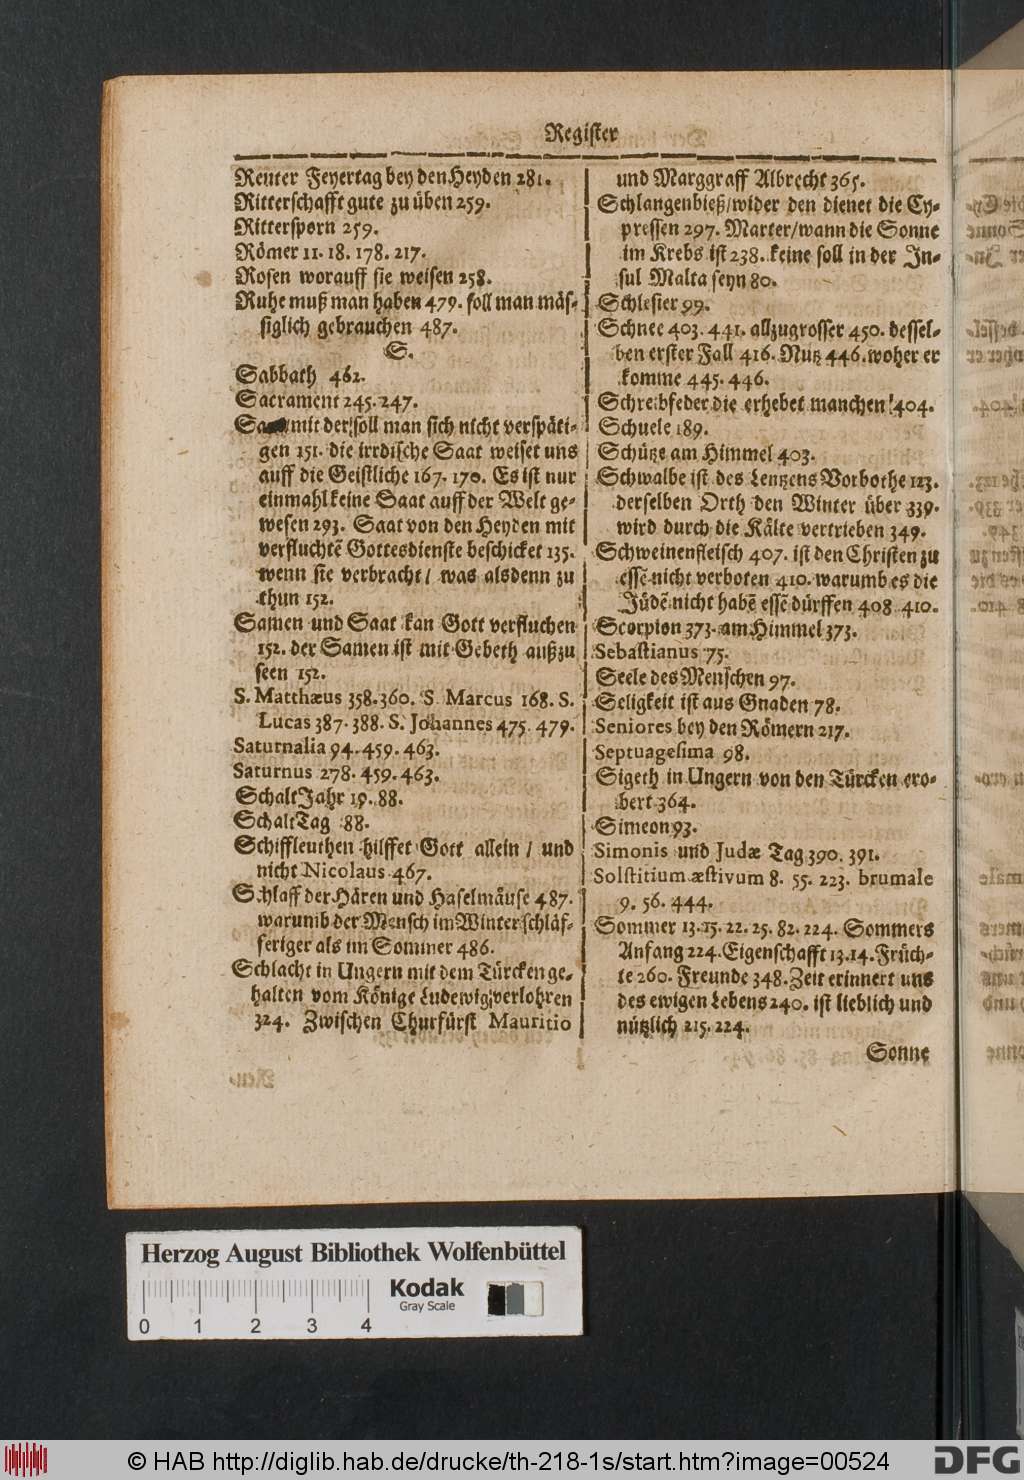 Register
Reuter Feyertag bey den Heyden 281.
Ritterschafft gute zu üben 259.
Rittersporn 259.
Römer 11. 18. 178. 217.
Rosen worauff sie weisen 258.
Ruhe muß man haben 479. soll man mäs-
siglich gebrauchen 487.
S.
Sabbath 462.
Sacrament 245. 247.
mit der soll man sich nicht verspäti-
gen 151. die irrdische Saat weiset uns
auff die Geistliche 167. 170. Es ist nur
einmahl keine Saat auff der Welt ge-
wesen 293. Saat von den Heyden mit
verfluchtē Gottesdienste beschicket 135.
wenn sie verbracht / was alsdenn zu
thun 152.
Samen und Saat kan Gott verfluchen
152. der Samen ist mit Gebeth außzu
seen 152.
S. Matthæus 358. 360. S. Marcus 168. S.
Lucas 387. 388. S. Johannes 475. 479.
Saturnalia 94. 459. 463.
Saturnus 278. 459. 463.
SchaltJahr 19. 88.
SchaltTag 88.
Schiffleuthen hilffet Gott allein / und
nicht Nicolaus 467.
Schlaff der Hären und Haselmäuse 487.
warumb der Mensch im Winter schläf-
feriger als im Sommer 486.
Schlacht in Ungern mit dem Türcken ge-
halten vom Könige Ludewig verlohren
324. Zwischen Churfürst Mauritio
und Marggraff Albrecht 365.
Schlangenbieß / wider den dienet die Cy-
pressen 297. Marter / wann die Sonne
im Krebs ist 238. keine soll in der In-
sul Malta seyn 80.
Schlesier 99.
Schnee 403. 441. allzugrosser 450. dessel-
ben erster Fall 416. Nutz 446. woher er
komme 445. 446.
Schreibfeder die erhebet manchen 404.
Schuele 189.
Schütze am Himmel 403.
Schwalbe ist des Lentzens Vorbothe 123.
derselben Orth den Winter über 339.
wird durch die Kälte vertrieben 349.
Schweinenfleisch 407. ist den Christen zu
essē nicht verboten 410. warumb es die
Jüdē nicht habē essē dürffen 408. 410.
Scorpion 373. am Himmel 373.
Sebastianus 75.
Seele des Menschen 97.
Seligkeit ist aus Gnaden 78.
Seniores bey den Römern 217.
Septuagesima 98.
Sigeth in Ungern von den Türcken ero-
bert 364.
Simeon 93.
Simonis und Judæ Tag 390. 391.
Solstitium æstivum 8. 55. 223. brumale
9. 56. 444.
Sommer 13. 15. 22. 25. 82. 224. Sommers
Anfang 224. Eigenschafft 13. 14. Früch-
te 260. Freunde 348. Zeit erinnert uns
des ewigen Lebens 240. ist lieblich und
nützlich 215. 224.
Sonne
Herzog August Bibliothek Wolfenbüttel
Kodak
Gray Scale
0 1 2 3 4
© HAB http://diglib.hab.de/drucke/th-218-1s/start.htm?image=00524
DFG